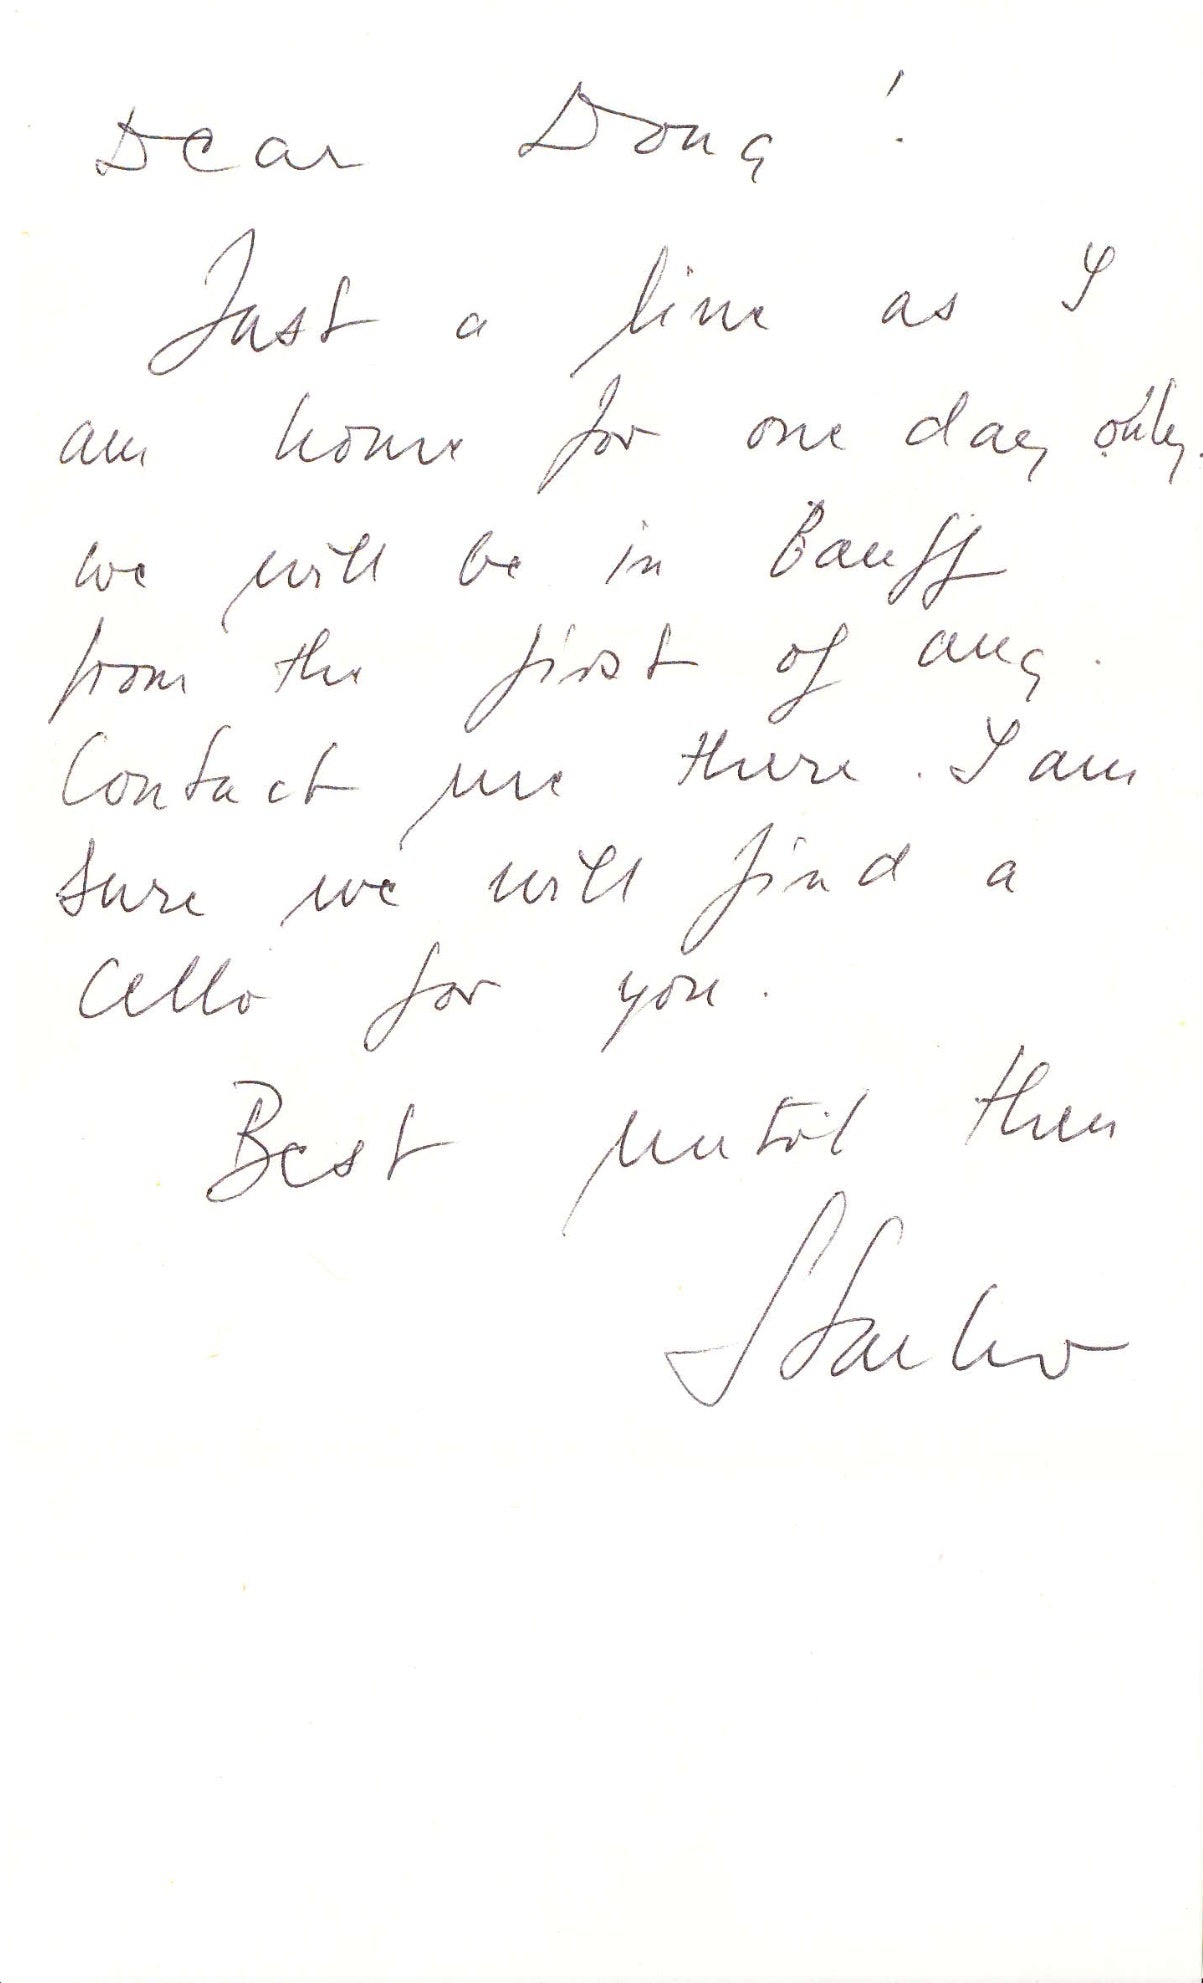 Dear Doug!
Just a line as I
am home for one day only.
We will be in Banff
from the first of Aug.
Contact me there. I am
sure we will find a
cello for you.
Best until then
Starker